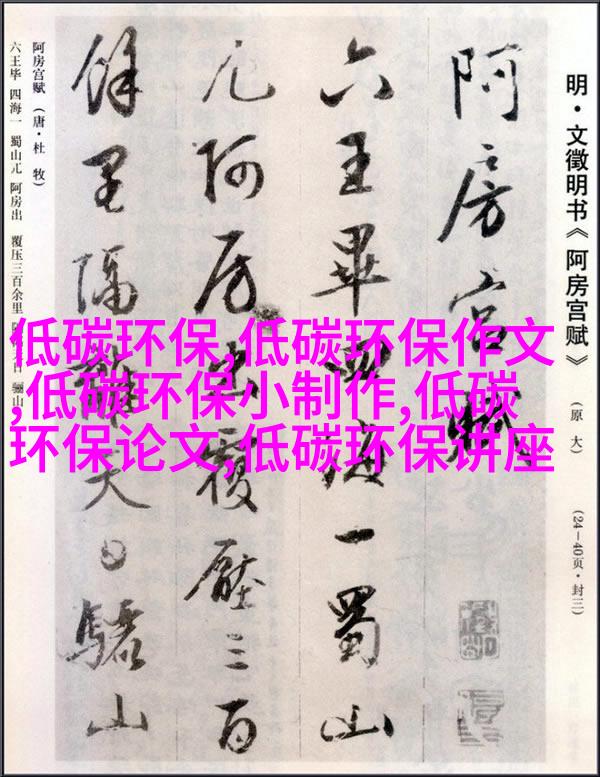 明·文徵明书《阿房宫赋》
(原大)
(24—40页·封三)
阿房宫賦
六王畢四海一蜀山
兀阿房出覆壓三百
餘里隔離天日驪山
阿房宫赋(唐·杜牧)
六王毕 四海一 蜀山兀 阿房出 覆压三百余里 骊山
低碳环保,低碳环保作文
,低碳环保小制作,低碳
环保论文,低碳环保讲座